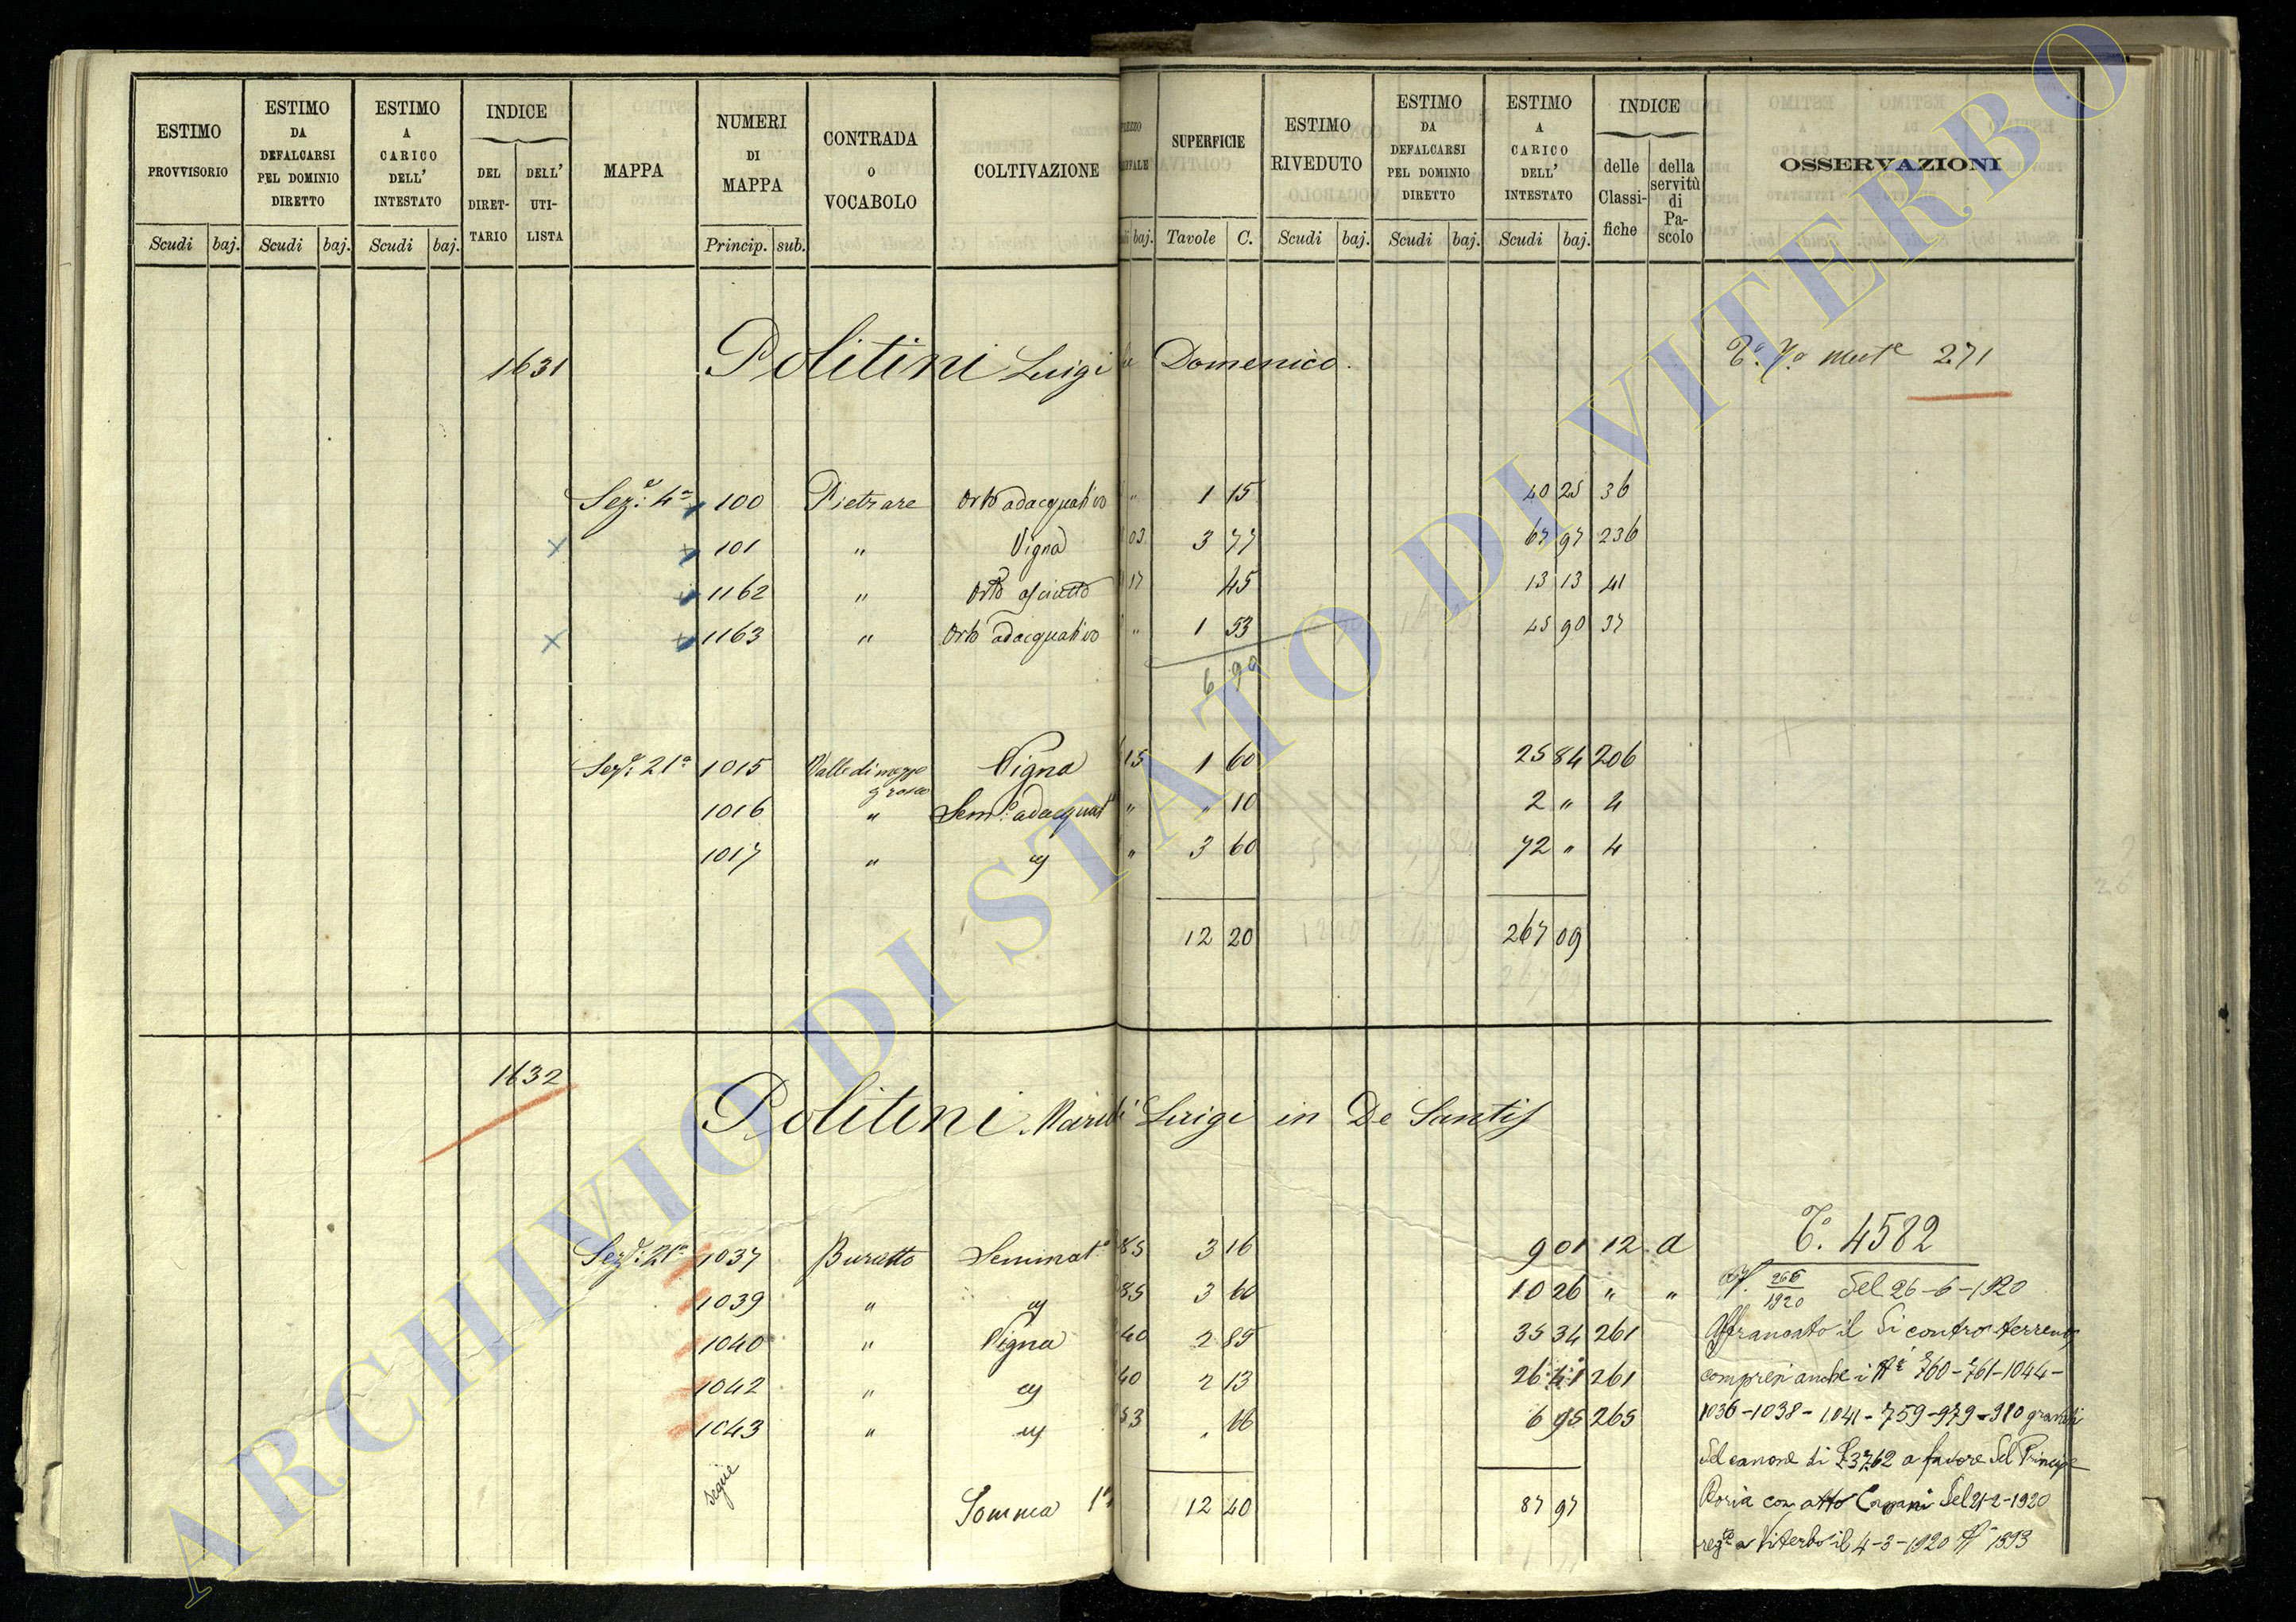 ESTIMO PROVVISORIO Scudi baj.
ESTIMO DA DEFALCARSI PEL DOMINIO DIRETTO Scudi baj.
ESTIMO A CARICO DELL' INTESTATO Scudi baj.
INDICE DEL DIRETTARIO DELL' UTILISTA
MAPPA
NUMERI DI MAPPA Princip. sub.
CONTRADA O VOCABOLO
COLTIVAZIONE
baj.
SUPERFICIE Tavole C.
ESTIMO RIVEDUTO Scudi baj.
ESTIMO DA DEFALCARSI PEL DOMINIO DIRETTO Scudi baj.
ESTIMO A CARICO DELL' INTESTATO Scudi baj.
INDICE delle Classifiche della servitù di Pascolo
OSSERVAZIONI
1631 Politini Luigi Domenico. 271
Sez.e 4a 100 Pietrare Orto adacquativo " 1 15 40 25 36
101 " Vigna 03 3 77 67 97 236
1162 " Orto asciutto 17 45 13 13 41
1163 " Orto adacquativo " 1 53 45 90 37
6 90
Sez.e 21a 1015 Valle di mezzo Vigna 15 1 60 25 84 206
grosso
1016 " Sem.o adacquat " " 10 2 " 4
1017 " " 3 60 72 " 4
12 20 267 09
1632
Politini Luigi in De Santis
T.o 4582
Sez.e 21a 1037 Buratto Seminat.o 85 3 16 9 01 12 a
1039 " 85 3 60 10 26 " " 266/1920 del 26-6-1920
1040 " Vigna 40 2 85 35 34 261 Affrancato il di contro terreno
1042 " 40 2 13 26 41 261 compresi anche i Ni 760-761-1044-
1043 " 53 " 66 6 95 265 1036-1038-1041-759-979-980 gravati
segue
del canone di £ 37.62 a favore del Principe
Somma 12 40 87 97 Doria con atto del 21-2-1920
a Viterbo il 4-3-1920 N 1393
ARCHIVIO DI STATO DI VITERBO